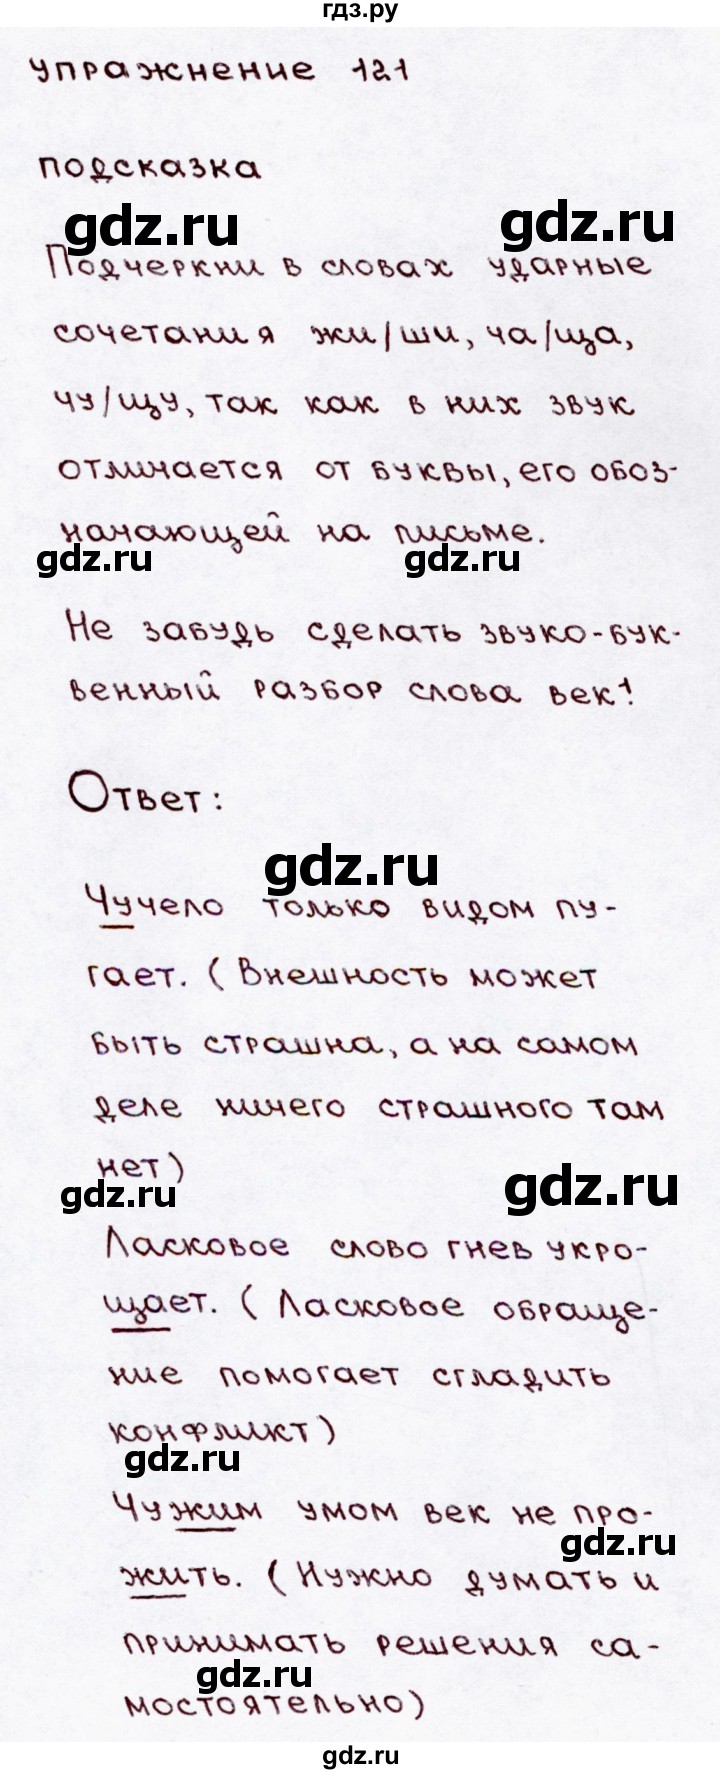 гдз.ру
упражнение 121
подсказка
gdz.ru gdz.ru
Подчеркни в словах ударные
сочетания жи/ши, ча/ща,
чу/щу, так как в них звук
отличается от буквы, его обоз-
начающей на письме.
gdz.ru gdz.ru
Не забудь сделать звуко-бук-
венный разбор слова век!
Ответ:
gdz.ru
Чучело только видом пу-
гает. (Внешность может
быть страшна, а на самом
деле ничего страшного там
нет)
gdz.ru gdz.ru
Ласковое слово гнев укро-
щает. (Ласковое обраще-
ние помогает сгладить
конфликт)
gdz.ru
Чужим умом век не про-
gdz.ru
жить. (Нужно думать и
принимать решения са-
gdz.ru
мостоятельно)
gdz.ru